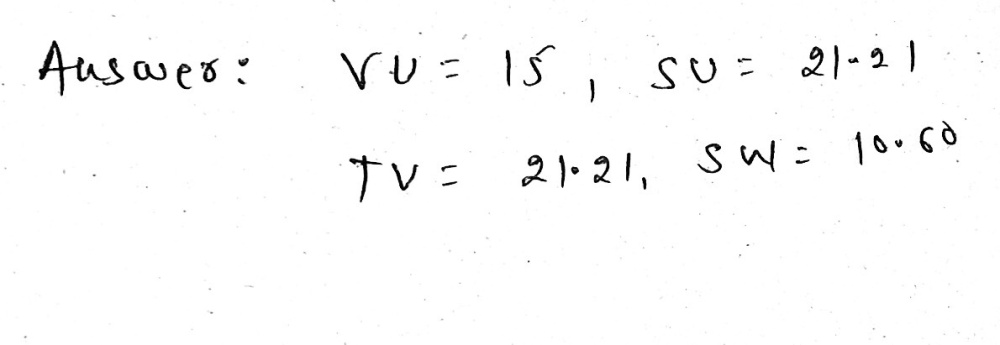 Answer: VU = 15, SU = 21.21
TV = 21.21, SW = 10.60